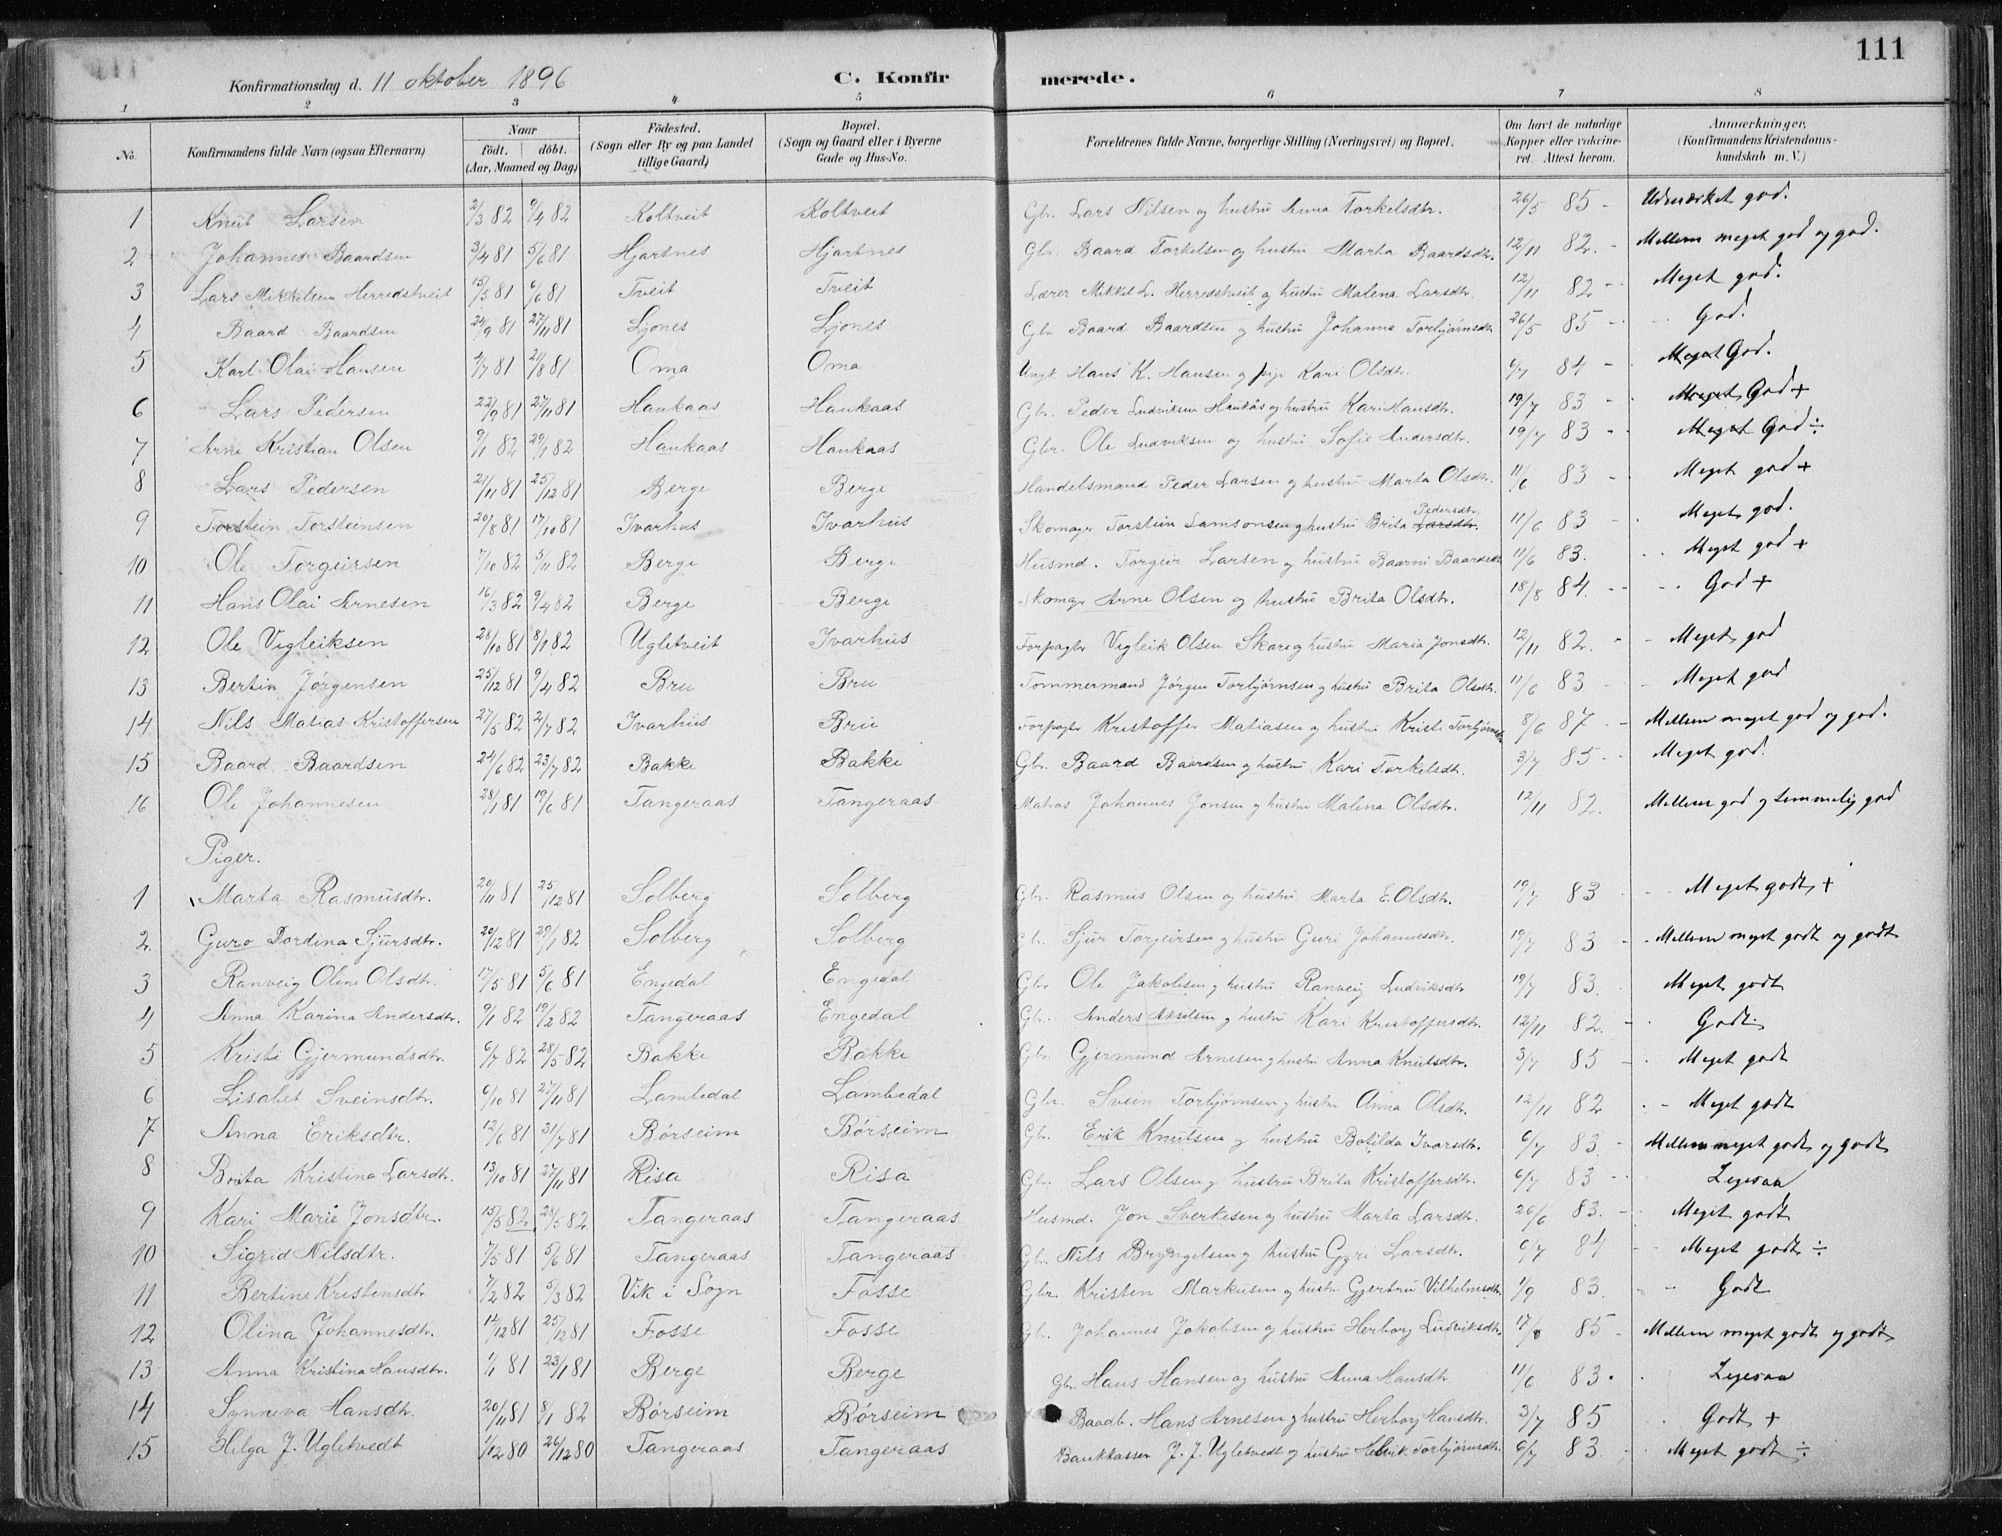 111
Konfirmationsdag d. 11 oktober 1896 C. Konfir merede.
1 2 3 4 5 6 7 8
No. Konfirmandens fulde Navn (ogsaa Efternavn) Naar Födt. döbt. (Aar, Maaned og Dag) Födested. (Sogn eller By og paa Landet tillige Gaard) Bopæl. (Sogn og Gaard eller i Byerne Gade og Hus-No. Forældrenes fulde Navne, borgerlige Stilling (Næringsvei) og Bopæl. Om havt de naturlige Kopper eller vakcineret. Attest herom. Anmærkninger. (Konfirmandens Kristendomskundskab m. V.)
1 Knut Larsen 2/3 82 9/4 82 Koltveit Koltveit Gbr. Lars Nilsen og hustru Anna Torkelsdtr. 26/5 85 - Udmærket god.
2 Johannes Baardsen 3/4 81 5/6 81 Hjartnes Hjartnes Gbr. Baard Torkelsen og hustru Marta Baardsdtr. 12/11 82. - Mellem meget god og god.
3 Lars Mikkelsen Herredstveit 15/5 81 6/6 81 Tveit Tveit Lærer Mikkel L. Herredstveit og hustru Malena Larsdtr. 12/11 82 - Meget god.
4 Baard Baardsen 24/9 81 27/11 81 Ljones Ljones Gbr. Baard Baardsen og hustru Johanna Torbjørnsdtr 26/5 85 - God.
5 Karl Olai Hansen 4/7 81 21/8 81 Oma Oma Ungk. Hans K. Hansen og pige Kari Olsdtr. 6/7 84 - Meget God.
6 Lars Pedersen 22/9 81 27/11 81 Haukaas Haukaas Gbr. Peder Ludviksen Haukås og hustru Kari Hansdtr. 19/7 83 - Meget God +
7 Arne Kristian Olsen 9/1 82 29/1 82 Haukaas Haukaas Gbr. Ole Ludviksen og hustru Sofie Andersdtr. 19/7 83 - Meget God ÷
8 Lars Pedersen 21/11 81 25/12 81 Berge Berge Handelsmand Peder Larsen og hustru Marta Olsdtr. 11/6 83 - Meget god +
9 Torstein Torsteinsen 20/8 81 17/10 81 Ivarhus Ivarhus Skomager Torstein Samsonsen og hustru Brita Larsdtr. Pedersdtr. 11/6 83 - Meget god.
10 Ole Torgeirsen 7/10 82 5/11 82 Berge Berge Husmd. Torgeir Larsen og hustru Baarni Baardsdtr 11/6 83. Meget god +
11 Hans Olai Arnesen 16/3 82 9/4 82 Berge Berge Skomager Arne Olsen og hustru Brita Olsdtr. 18/8 84. God +
12 Ole Vigleiksen 28/10 81 8/1 82 Ugletveit Ivarhus Forpagter Vigleik Olsen Skare og hustru Maria Jonsdtr. 12/11 82. Meget god
13 Bertin Jørgensen 25/12 81 9/4 82 Bru Bru Tømmermand Jørgen Torbjørnsen og hustru Brita Olsdtr. 11/6 83 - Meget god
14 Nils Matias Kristoffersen 27/5 82 2/7 82 Ivarhus Bru Forpagter Kristoffer Matiasen og hustru Kristi Torbjørnsdtr 8/6 87 - Mellem meget god og god.
15 Baard Baardsen 24/6 82 23/7 82 Bakke Bakke Gbr. Baard Baardsen og hustru Kari Torkelsdtr. 3/7 85 - Meget god.
16 Ole Johannesen 28/1 81 19/6 81 Tangeraas Tangeraas Matros Johannes Jonsen og hustru Malena Olsdtr. 12/11 82. Mellem god og temmelig god
Piger.
1 Marta Rasmusdtr. 20/11 81 25/12 81 Solberg Solberg Gbr. Rasmus Olsen og hustru Marta E. Olsdtr. 19/7 83 Meget godt +
2 Guro Dordina Sjursdtr. 20/12 81 29/1 82 Solberg Solberg Gbr. Sjur Torgeirsen og hustru Guri Johannesdtr. 19/7 83 Mellem meget godt og godt
3 Ranveig Oline Olsdtr. 17/5 81 5/6 81 Engedal Engedal Gbr. Ole Jakobsen og hustru Ranveig Ludviksdtr 19/7 83. Meget godt
4 Anna Karina Andersdtr. 9/1 82 19/2 82 Tangeraas Engedal Gbr. Anders Akselsen og hustru Kari Kristoffersdtr. 12/11 82. Godt.
5 Kristi Gjermundsdtr. 6/7 82 28/5 82 Bakke Bakke Gbr. Gjermund Arnesen og hustru Anna Knutsdtr. 3/7 85 - Meget godt
6 Lisabet Sveinsdtr. 6/10 81 27/11 81 Lambedal Lambedal Gbr. Svein Torbjørnsen og hustru Anna Olsdtr. 12/11 82 Meget godt
7 Anna Eriksdtr. 12/6 81 31/7 81 Börseim Börseim Gbr. Erik Knutsen og hustru Botilda Ivarsdtr. 6/7 83 - Mellem meget godt og godt
8 Brita Kristina Larsdtr. 13/10 81 27/11 81 Risa Risa Gbr. Lars Olsen og hustru Brita Kristoffersdtr. 6/7 83 Ligesaa
9 Kari Marie Jonsdtr. 15/5 82 28/5 82 Tangeraas Tangeraas Husmd. Jon Sverkesen og hustru Marta Larsdtr. 26/6 83. - Meget godt
10 Sigrid Nilsdtr. 7/5 81 5/6 81 Tangeraas Tangeraas Gbr. Nils Bryngelsen og hustru Gyri Larsdtr. 6/7 84 Meget godt ÷
11 Bertine Kristensdtr. 7/2 82 5/3 82 Vik i Sogn Fosse Gbr Kristen Markusen og hustru Gjertru Vilhelmsdtr. 1/9 83. Godt
12 Olina Johannesdtr. 14/12 81 25/12 81 Fosse Fosse Gbr. Johannes Jakobsen og hustru Herborg Ludviksdtr. 17/8 85 - Mellem meget godt og godt
13 Anna Kristina Hansdtr. 1/1 81 23/1 81 Berge Berge Gbr. Hans Hansen og hustru Anna Hansdtr 11/6 83. Ligesaa
14 Synneva Hansdtr. 20/11 81 8/1 82 Börseim Börseim Baadb. Hans Arnesen og hustru Herborg Hansdtr. 3/7 85 Godt +
15 Helga J. Ugletvedt 1/12 80 26/12 80 Tangeraas Tangeraas Bankkasser J. J. Ugletvedt og hustru Helvik Torbjørnsdtr. 6/7 83 - Meget godt ÷